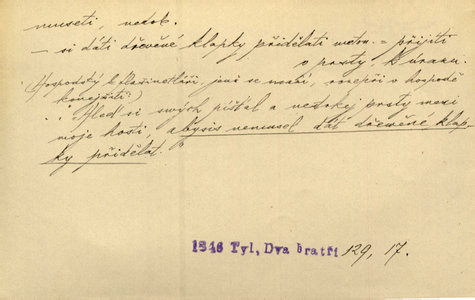 museti, nedok.
— si dáti dřevěné klapky přidělati meton. = přijíti
o prsty k úrazu.
(Hospodský k klarinetláři, jenž se
konejšiti:)
„Hleď si svých píšťal a nestrkej prsty mezi
moje hosti, abysis nemusel dát dřevěné klap-
ky přidělat.“
1846 Tyl, Dva bratři 129, 17.